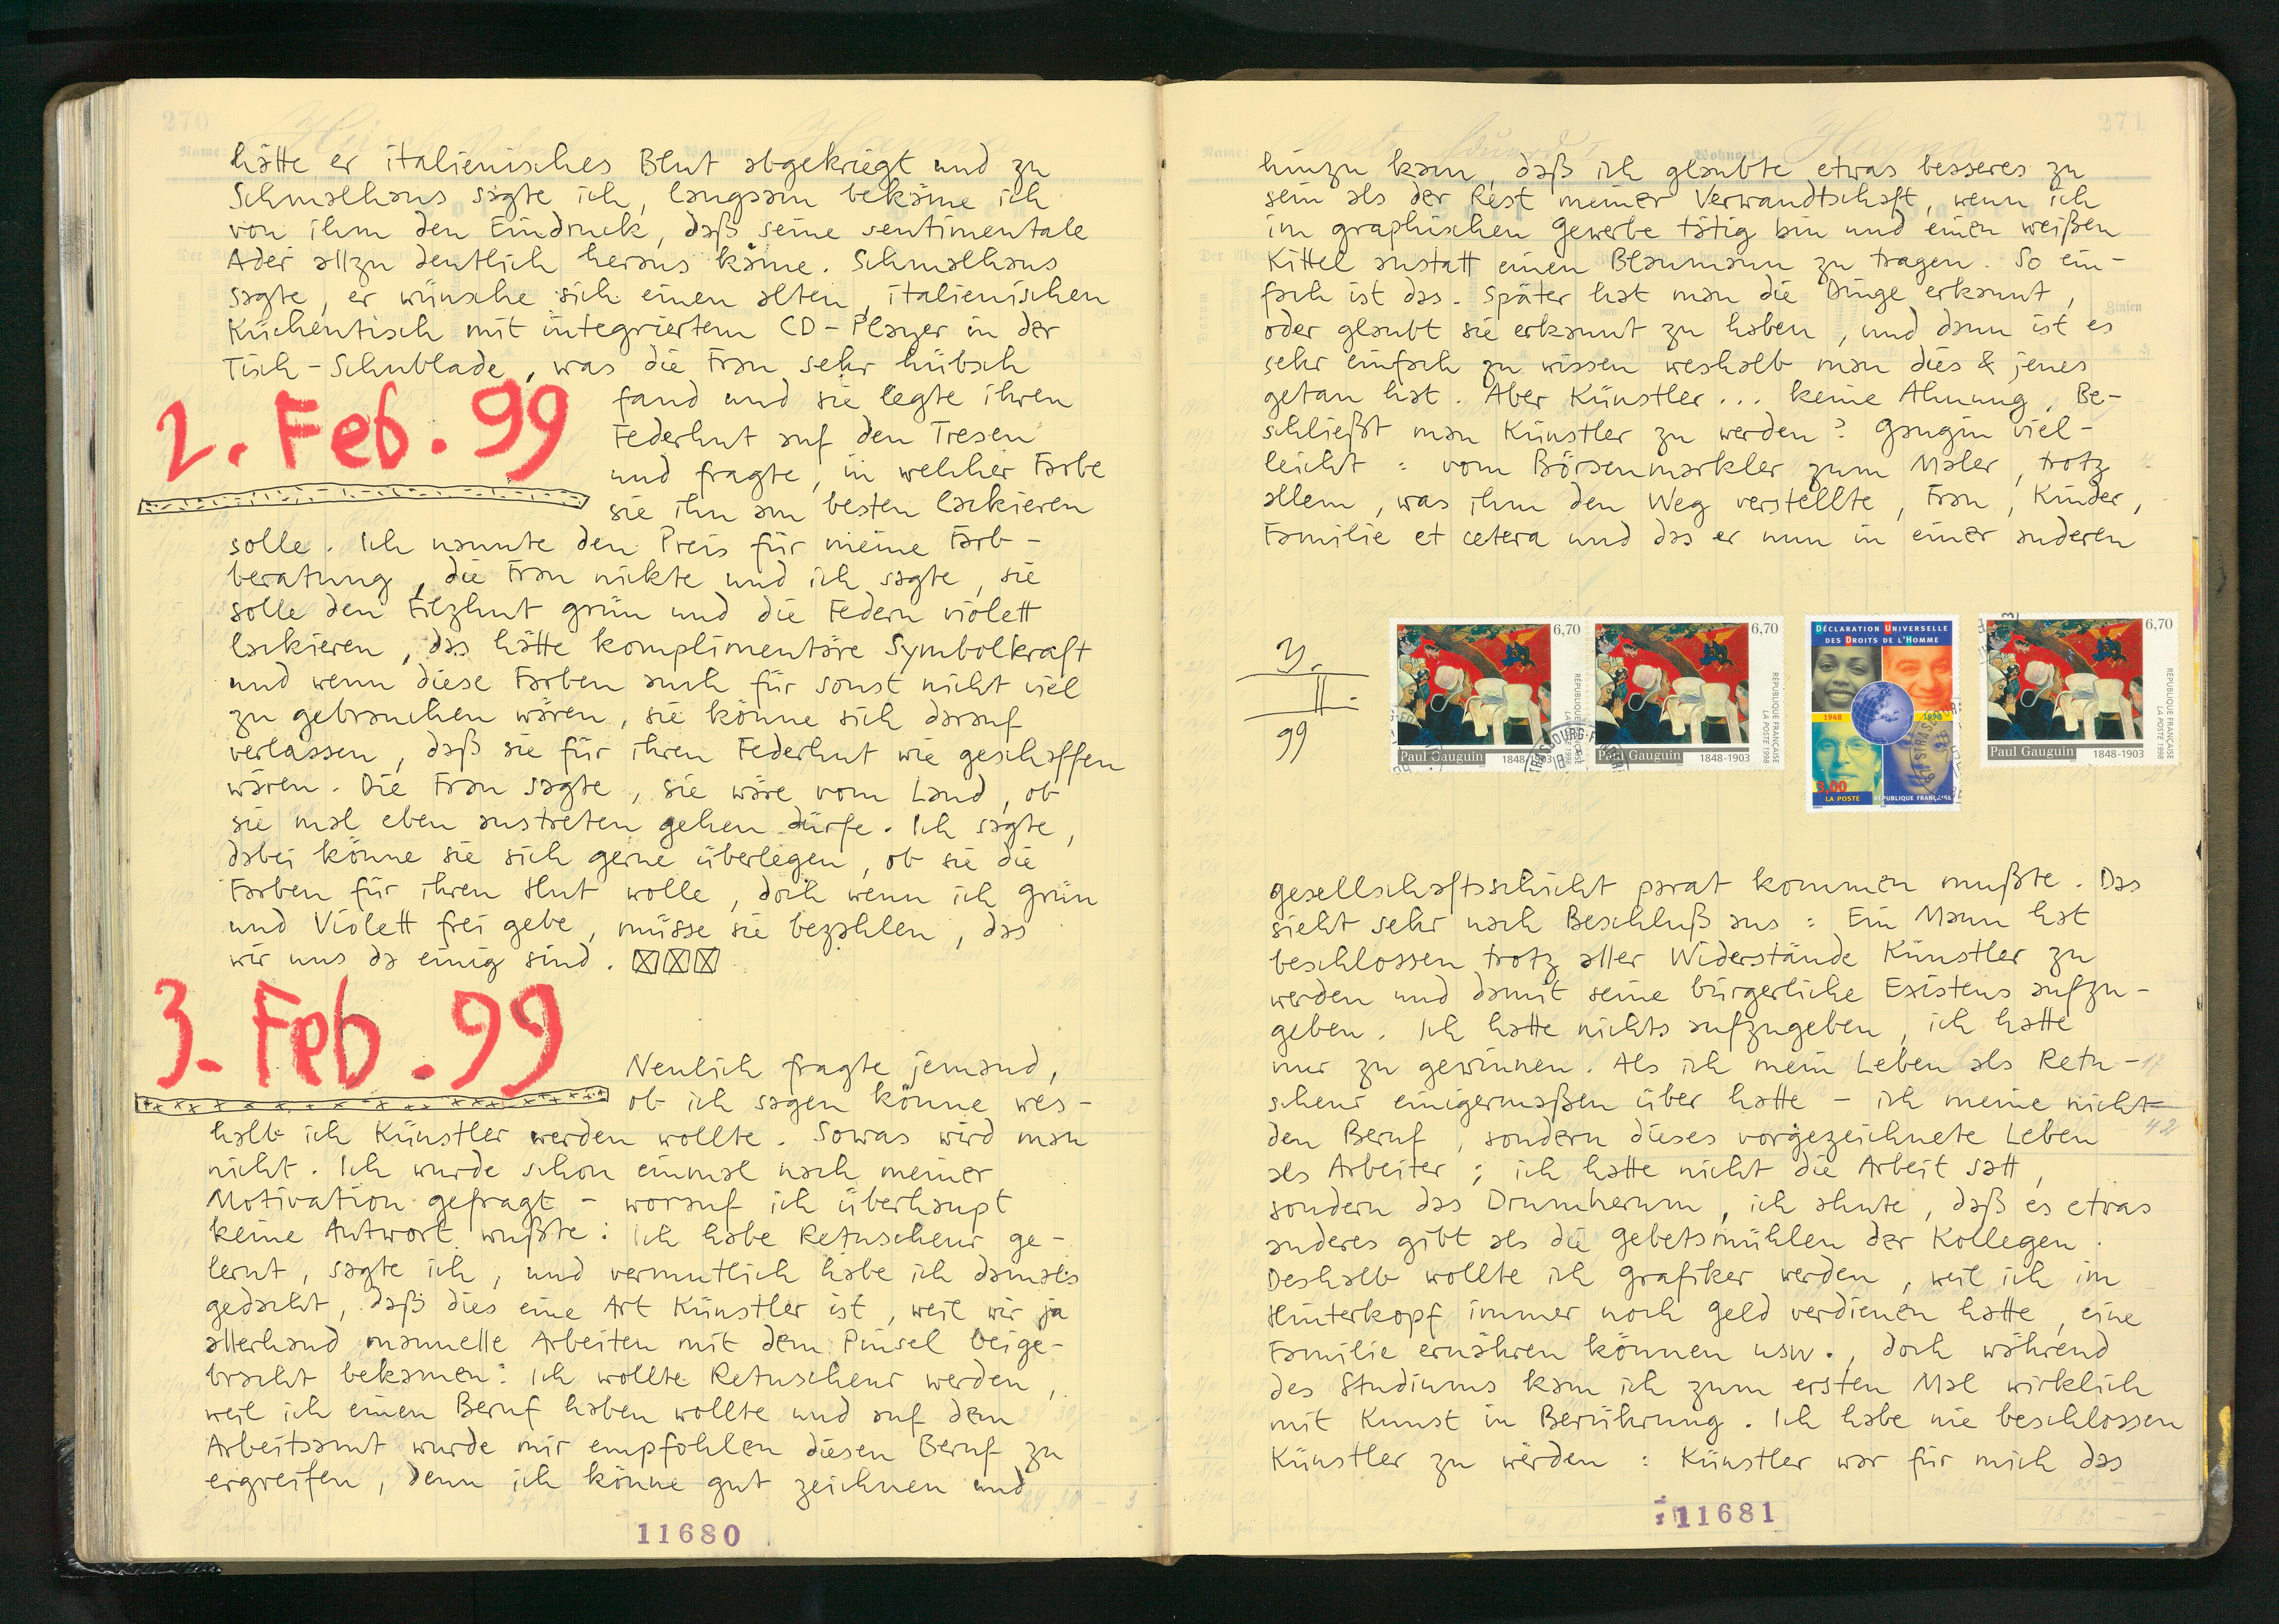 270
hätte er italienisches Blut abgekriegt und zu
Schmalhans sagte ich, langsam bekäme ich
von ihm den Eindruck, daß seine sentimentale
Ader allzu deutlich heraus käme. Schmalhans
sagte, er wünsche sich einen alten, italienischen
Küchentisch mit integriertem CD-Player in der
Tisch-Schublade, was die Frau sehr hübsch
2. Feb. 99
fand und sie legte ihren
Federhut auf den Tresen
und fragte, in welcher Farbe
sie ihn am besten lackieren
solle. Ich nannte den Preis für meine Farb-
beratung, die Frau nickte und ich sagte, sie
solle den Filzhut grün und die Federn violett
lackieren, das hätte komplimentäre Symbolkraft
und wenn diese Farben auch für sonst nicht viel
zu gebrauchen wären, sie könne sich darauf
verlassen, daß sie für ihren Federhut wie geschaffen
wären. Die Frau sagte, sie wäre vom Land, ob
sie mal eben austreten gehen dürfe. Ich sagte,
dabei könne sie sich gerne überlegen, ob sie die
Farben für ihren Hut wolle, doch wenn ich Grün
und Violett frei gebe, müsse sie bezahlen, das
wir uns da einig sind.
3. Feb. 99
Neulich fragte jemand,
ob ich sagen könne wes-
halb ich Künstler werden wollte. Sowas wird man
nicht. Ich wurde schon einmal nach meiner
Motivation gefragt - worauf ich überhaupt
keine Antwort wußte: Ich habe Retuscheur ge-
lernt, sagte ich, und vermutlich habe ich damals
gedacht, daß dies eine Art Künstler ist, weil wir ja
allerhand manuelle Arbeiten mit dem Pinsel beige-
bracht bekamen: Ich wollte Retuscheur werden,
weil ich einen Beruf haben wollte und auf dem
Arbeitsamt wurde mir empfohlen diesen Beruf zu
ergreifen, denn ich könne gut zeichnen und
11680
271
Name:
Wohnort:
hinzu kam, daß ich glaubte etwas besseres zu
sein als der Rest meiner Verwandtschaft, wenn ich
im graphischen Gewerbe tätig bin und einen weißen
Kittel anstatt einen Blaumann zu tragen. So ein-
fach ist das. Später hat man die Dinge erkannt,
oder glaubt sie erkannt zu haben, und dann ist es
sehr einfach zu wissen weshalb man dies & jenes
getan hat. Aber Künstler... keine Ahnung. Be-
schließt man Künstler zu werden? Gaugin viel-
leicht: vom Börsenmarkler zum Maler, trotz
allem, was ihm den Weg verstellte, Frau, Kinder,
Familie et cetera und das er nun in einer anderen
3.
II.
99
6,70
Paul Gauguin
1848-1903
RÉPUBLIQUE FRANÇAISE
LA POSTE 1998
6,70
Paul Gauguin
1848-1903
RÉPUBLIQUE FRANÇAISE
LA POSTE 1998
DÉCLARATION UNIVERSELLE
DES DROITS DE L'HOMME
1948
1998
3,00
LA POSTE
RÉPUBLIQUE FRANÇAISE
6,70
Paul Gauguin
1848-1903
RÉPUBLIQUE FRANÇAISE
LA POSTE 1998
gesellschaftsschicht parat kommen mußte. Das
sieht sehr nach Beschluß aus: Ein Mann hat
beschlossen trotz aller Widerstände Künstler zu
werden und damit seine bürgerliche Existens aufzu-
geben. Ich hatte nichts aufzugeben, ich hatte
nur zu gewinnen. Als ich mein Leben als Retu-
scheur einigermaßen über hatte - ich meine nicht
den Beruf, sondern dieses vorgezeichnete Leben
als Arbeiter; ich hatte nicht die Arbeit satt,
sondern das Drumherum, ich ahnte, daß es etwas
anderes gibt als die Gebetsmühlen der Kollegen.
Deshalb wollte ich Grafiker werden, weil ich im
Hinterkopf immer noch Geld verdienen hatte, eine
Familie ernähren können usw., doch während
des Studiums kam ich zum ersten Mal wirklich
mit Kunst in Berührung. Ich habe nie beschlossen
Künstler zu werden: Künstler war für mich das
11681